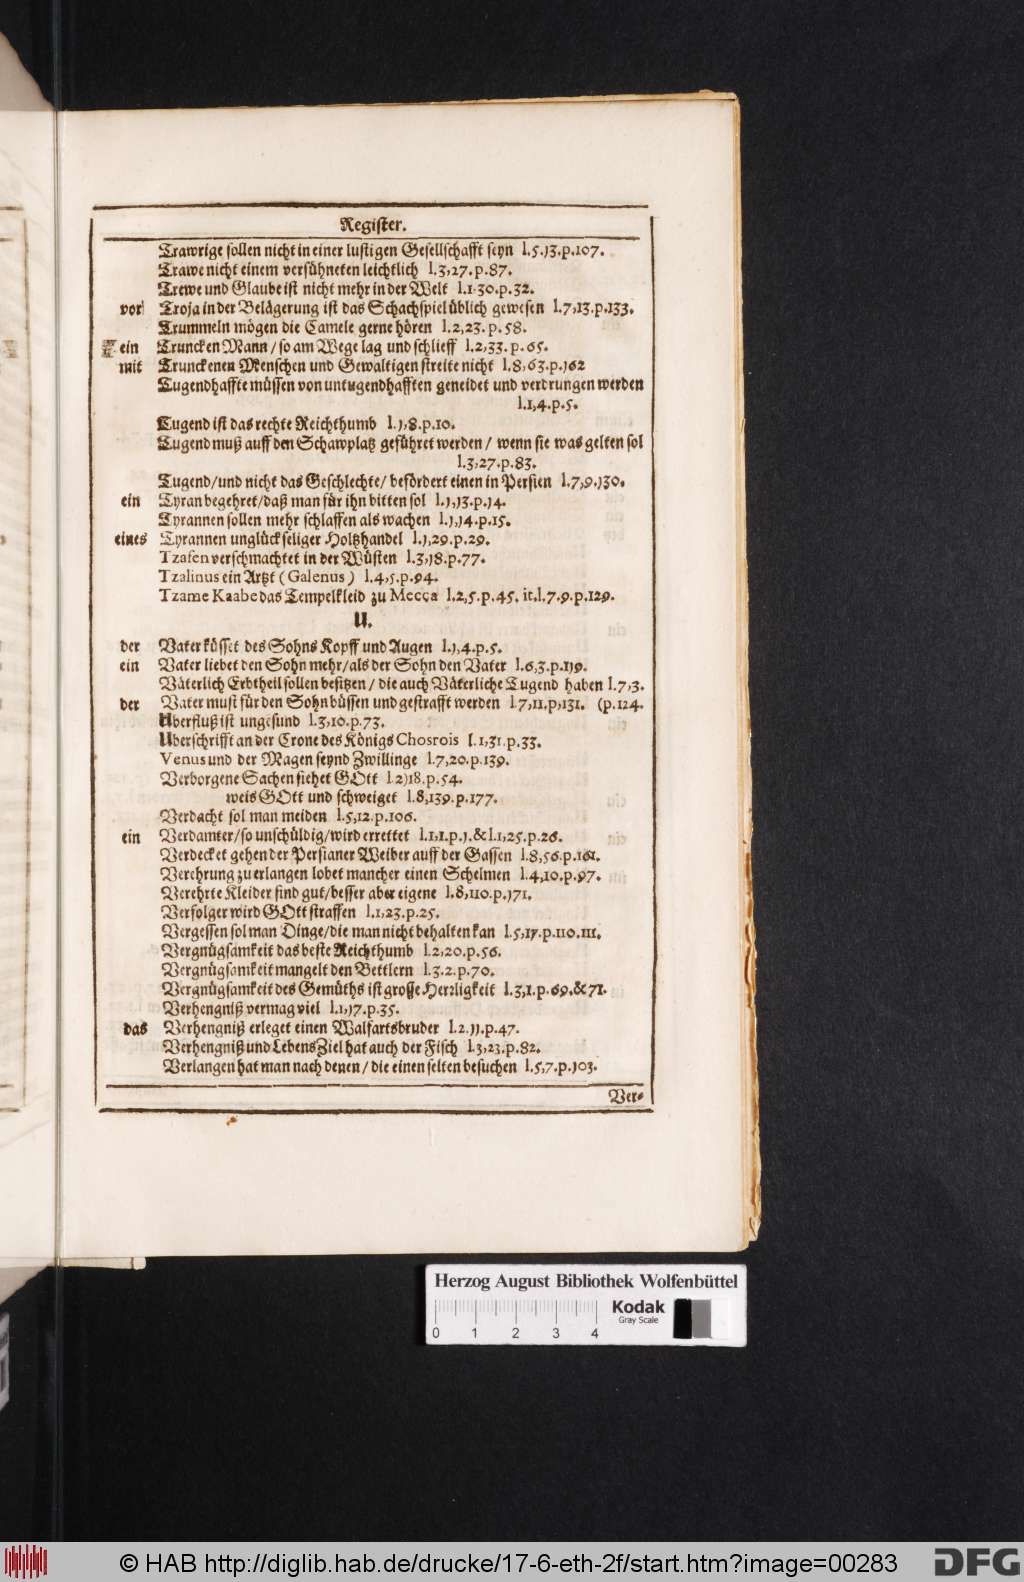 Register.
Trawrige sollen nicht in einer lustigen Gesellschafft seyn l.5.13.p.107.
Trawe nicht einem versühneten leichtlich l.3,27.p.87.
Trewe und Glaube ist nicht mehr in der Welt l.1.30.p.32.
vor Troja in der Belägerung ist das Schachspiel üblich gewesen l.7,13.p.133.
Trummeln mögen die Camele gerne hören l.2,23.p.58.
ein Truncken Mann / so am Wege lag und schlieff l.2,33.p.65.
mit Trunckenen Menschen und Gewaltigen streite nicht l.8,63.p.162
Tugendhaffte müssen von untugendhafften geneidet und verdrungen werden
l.1,4.p.5.
Tugend ist das rechte Reichthumb l.1,8.p.10.
Tugend muß auff den Schawplatz geführet werden / wenn sie was gelten sol
l.3,27.p.83.
Tugend/und nicht das Geschlechte/ befördert einen in Persien l.7,9.130.
ein Tyran begehret/daß man für ihn bitten sol l.1,13.p.14.
Tyrannen sollen mehr schlaffen als wachen l.1,14.p.15.
eines Tyrannen unglückseliger Holtzhandel l.1,29.p.29.
Tzafen verschmachtet in der Wüsten l.3,18.p.77.
Tzalinus ein Artzt (Galenus) l.4,5.p.94.
Tzame Kaabe das Tempelkleid zu Mecca l.2,5.p.45. it.l.7.9.p.129.
U.
der Vater küsset des Sohns Kopff und Augen l.1,4.p.5.
ein Vater liebet den Sohn mehr/als der Sohn den Vater l.6,3.p.119.
Väterlich Erbtheil sollen besitzen / die auch Väterliche Tugend haben l.7,3.
der Vater must für den Sohn büssen und gestrafft werden l.7,11.p,131. (p.124.
Uberfluß ist ungesund l.3,10.p.73.
Uberschrifft an der Crone des Königs Chosrois l.1,31.p.33.
Venus und der Magen seynd Zwillinge l.7,20.p.139.
Verborgene Sachen siehet GOtt l 2)18.p.54.
weis GOtt und schweiget l.8,139.p.177.
Verdacht sol man meiden l.5,12.p.106.
ein Verdamter/so unschüldig/wird errettet l.1,1.p.1.&l.1,25.p.26.
Verdecket gehen der Persianer Weiber auff der Gassen l.8,56.p.161.
Verehrung zu erlangen lobet mancher einen Schelmen l.4,10.p.97.
Verehrte Kleider sind gut/besser aber eigene l.8,110.p.171.
Verfolger wird GOtt straffen l.1,23.p.25.
Vergessen sol man Dinge/die man nicht behalten kan l.5,17.p.110.111.
Vergnügsamkeit das beste Reichthumb l.2,20.p.56.
Vergnügsamkeit mangelt den Bettlern l.3.2.p.70.
Vergnügsamkeit des Gemüths ist grosse Herrligkeit l.3,1.p.69.&71.
Verhengniß vermag viel l.1,17.p.35.
das Verhengniß erleget einen Walfartsbruder l.2.11.p.47.
Verhengniß und Lebens Ziel hat auch der Fisch l.3,23.p.82.
Verlangen hat man nach denen / die einen selten besuchen l.5,7.p.103.
Ver-
Herzog August Bibliothek Wolfenbüttel
Kodak
Gray Scale
0 1 2 3 4
© HAB http://diglib.hab.de/drucke/17-6-eth-2f/start.htm?image=00283
DFG